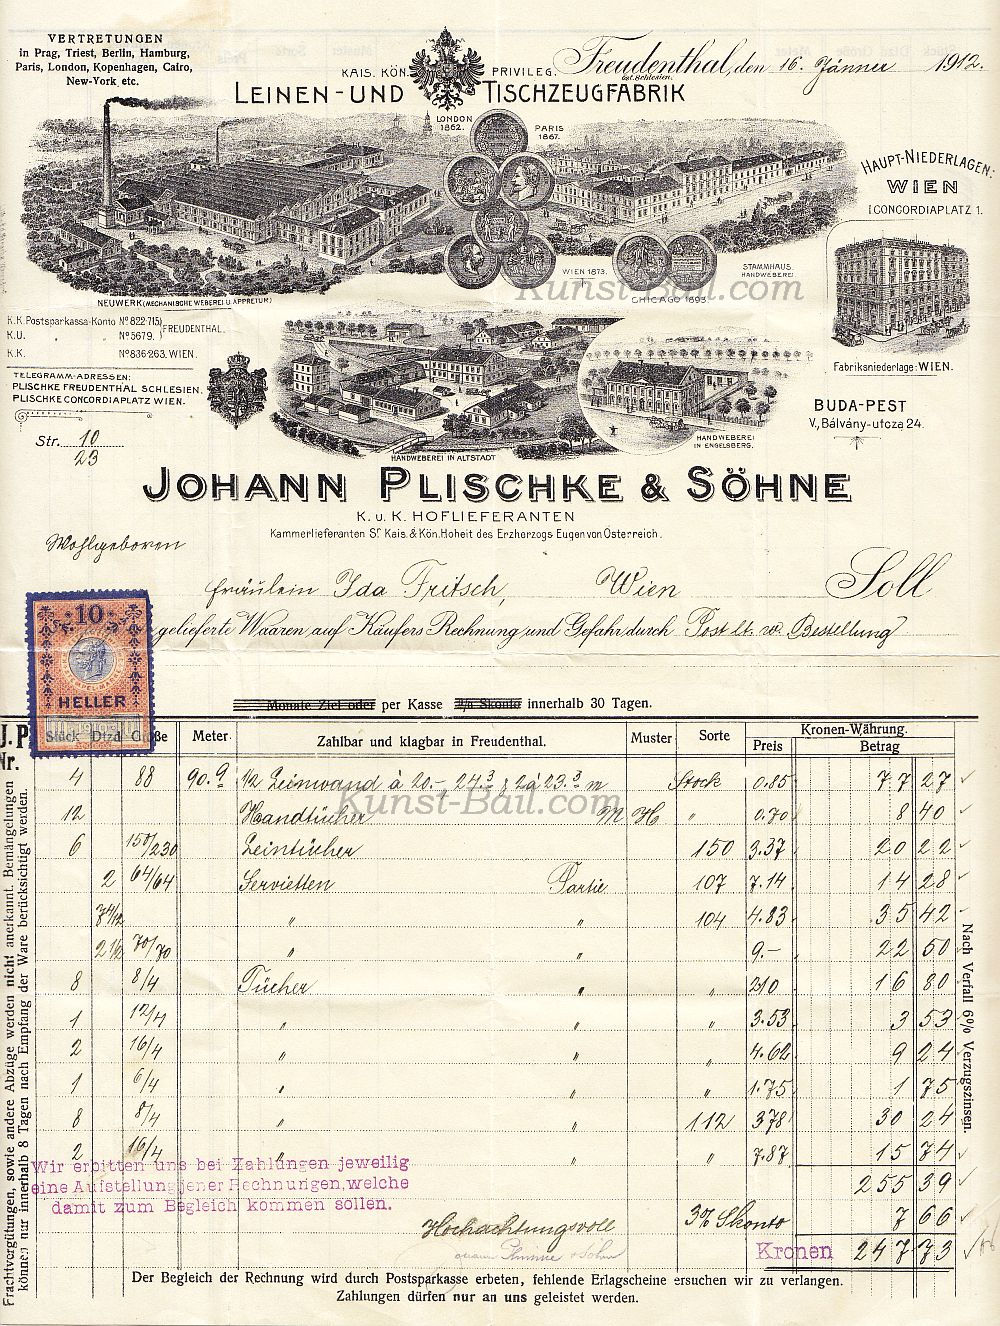 VERTRETUNGEN
in Prag, Triest, Berlin, Hamburg,
Paris, London, Kopenhagen, Cairo,
New-York etc.
KAIS. KÖN. PRIVILEG.
LEINEN- UND TISCHZEUGFABRIK
Freudenthal, den 16. Jänner 1912.
öst. Schlesien.
LONDON 1862.
PARIS 1867.
HAUPT-NIEDERLAGEN:
WIEN
I CONCORDIAPLATZ 1.
WIEN 1873.
CHICAGO 1893
STAMMHAUS.
HANDWEBEREI
Kunst-Bail.com
NEUWERK (MECHANISCHE WEBEREI U. APPRETUR)
K.K. Postsparkassa-Konto No 822.715
K.U. " " No 5679. FREUDENTHAL.
K.K. No 836.263. WIEN.
TELEGRAMM-ADRESSEN:
PLISCHKE FREUDENTHAL SCHLESIEN.
PLISCHKE CONCORDIAPLATZ WIEN.
Fabriksniederlage: WIEN.
BUDA-PEST
V., Bálvány-utcza 24.
Str. 10
23
HANDWEBEREI IN ALTSTADT
HANDWEBEREI
IN ENGELSBERG.
JOHANN PLISCHKE & SÖHNE
K. u. K. HOFLIEFERANTEN
Kammerlieferanten Sr. Kais. & Kön. Hoheit des Erzherzogs Eugen von Österreich.
Wohlgeboren
Fräulein Ida Fritsch, Wien Soll
gelieferte Waaren auf Käufers Rechnung und Gefahr durch Post lt. w. Bestellung
10
HELLER
Monate Ziel oder per Kasse % Skonto innerhalb 30 Tagen.
J. P. Nr. Stück Dtzd Größe Meter. Zahlbar und klagbar in Freudenthal. Muster Sorte Kronen-Währung.
Preis Betrag
4 88 90.9 1/2 Leinwand à 20.- 24.3 & 2 à 23.3 m Stock 0.85 77 27
12 Handtücher M H " 0.70 8 40
Kunst-Bail.com
6 150/230 Leintücher 150 3.37 20 22
2 64/64 Servietten Partie 107 7.14 14 28
7 4/12 " " 104 4.83 35 42
2 1/2 70/70 " " 9.- 22 50
8 8/4 Tücher " " 2.10 16 80
1 12/4 " " " 3.53 3 53
2 16/4 " " " 4.62 9 24
1 6/4 " " " 1.75 1 75
8 8/4 " " 112 3.78 30 24
2 16/4 " " " 7.87 15 74
255 39
3% Skonto 7 66
Kronen 247 73
Wir erbitten uns bei Zahlungen jeweilig
eine Aufstellung jener Rechnungen, welche
damit zum Begleich kommen sollen.
Hochachtungsvoll
Der Begleich der Rechnung wird durch Postsparkasse erbeten, fehlende Erlagscheine ersuchen wir zu verlangen.
Zahlungen dürfen nur an uns geleistet werden.
Frachtvergütungen, sowie andere Abzüge werden nicht anerkannt. Bemängelungen
können nur innerhalb 8 Tagen nach Empfang der Ware berücksichtigt werden.
Nach Verfall 6% Verzugszinsen.